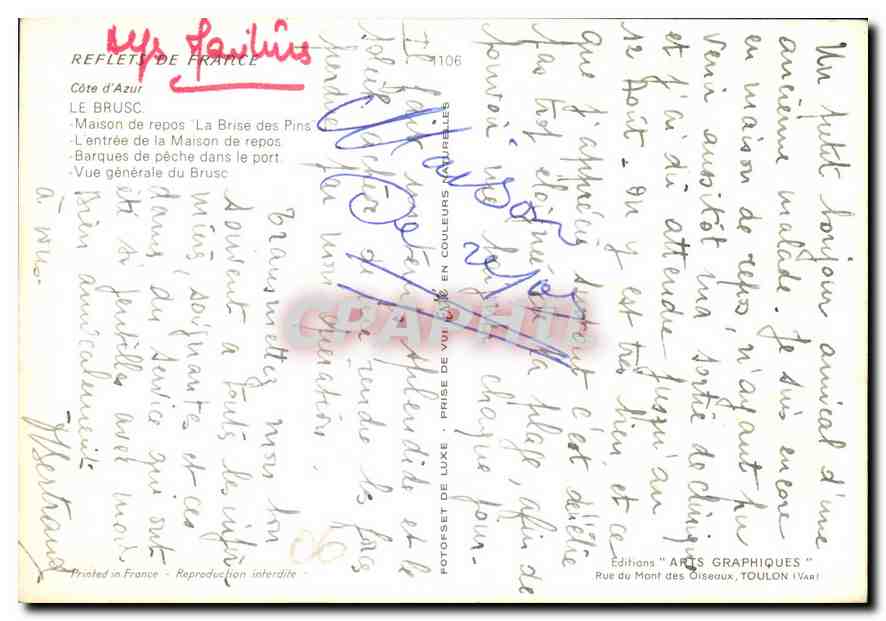 Les Jardins
REFLETS DE FRANCE
1106
Côte d'Azur
LE BRUSC.
-Maison de repos "La Brise des Pins
-L'entrée de la Maison de repos.
-Barques de pêche dans le port.
-Vue générale du Brusc
Maison
De
repos
Un petit bonjour amical d'une
ancienne malade. Je suis encore
en maison de repos, n'ayant pu
venir aussitôt ma sortie de clinique
et j'ai dû attendre jusqu'au
12 Août - On y est très bien et ce
que j'apprécie surtout c'est d'être
pas trop éloignée de la plage, afin de
pouvoir me baigner chaque jour -
Il fait un temps splendide et le
soleil achève de me rendre les forces
perdues par mon opération.
Transmettez mon bon
souvenir à toutes les infir
mières, soignantes et ces
dames du service qui ont
été si gentilles avec moi
Bien amicalement
à vous.
JBertrand
FOTOFSET DE LUXE - PRISE DE VUE EN COULEURS NATURELLES
CPARPHIL
Printed in France - Reproduction interdite -
Éditions "ARTS GRAPHIQUES"
Rue du Mont des Oiseaux, TOULON (VAR)